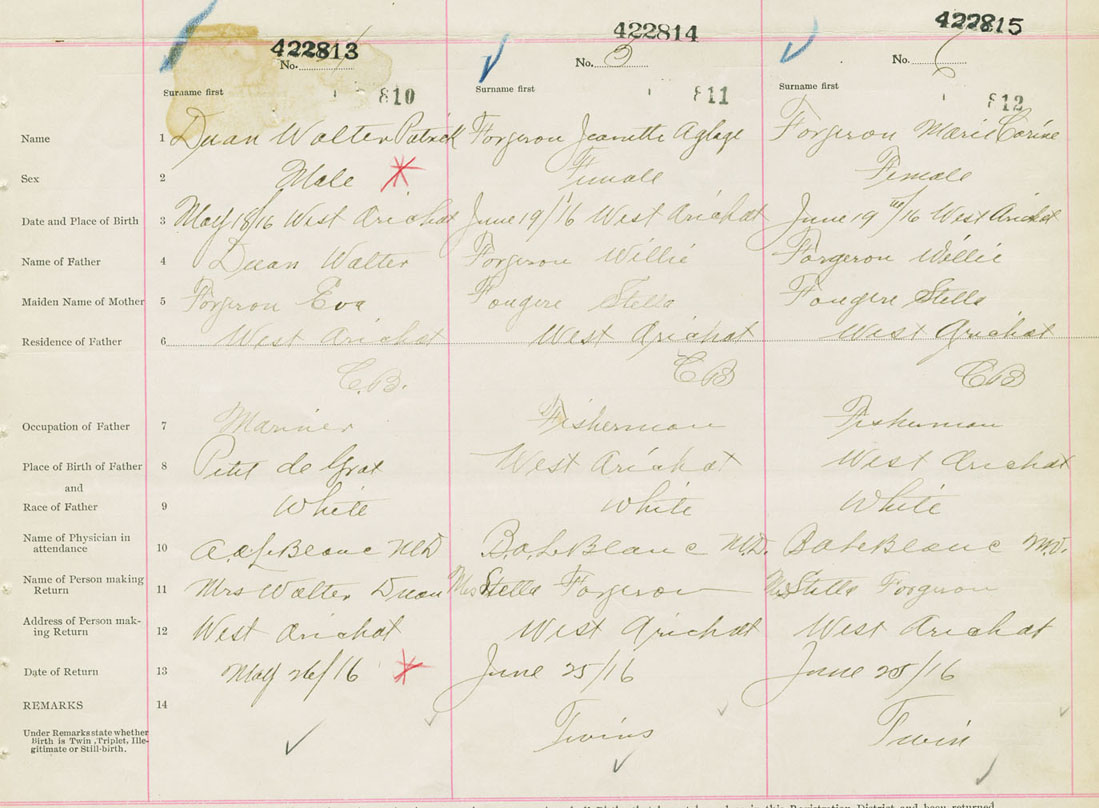 422813 422814 422815
No. No. 5 No. 6
Surname first Surname first Surname first
810 811 812
Name 1 Duan Walter Patrick Forgeron Jeanette Aglage Forgeron Marie Corine
Sex 2 Male Female Female
Date and Place of Birth 3 May 18/16 West Arichat June 19/16 West Arichat June 19th/16 West Arichat
Name of Father 4 Duan Walter Forgeron Willie Forgeron Willie
Maiden Name of Mother 5 Forgeron Eva Fougere Stella Fougere Stella
Residence of Father 6 West Arichat West Arichat West Arichat
C.B. CB CB
Occupation of Father 7 Mariner Fisherman Fisherman
Place of Birth of Father 8 Petit de Grat West Arichat West Arichat
and
Race of Father 9 White White White
Name of Physician in
attendance 10 LeBlanc MD B.A. LeBlanc M.D. BA LeBlanc M.D.
Name of Person making
Return 11 Mrs Walter Duan Mrs Stella Forgeron Mrs Stella Forgeron
Address of Person mak-
ing Return 12 West Arichat West Arichat West Arichat
Date of Return 13 May 26/16 June 25/16 June 25/16
REMARKS 14
Under Remarks state whether
Birth is Twin, Triplet, Ille-
gitimate or Still-birth. Twins Twin